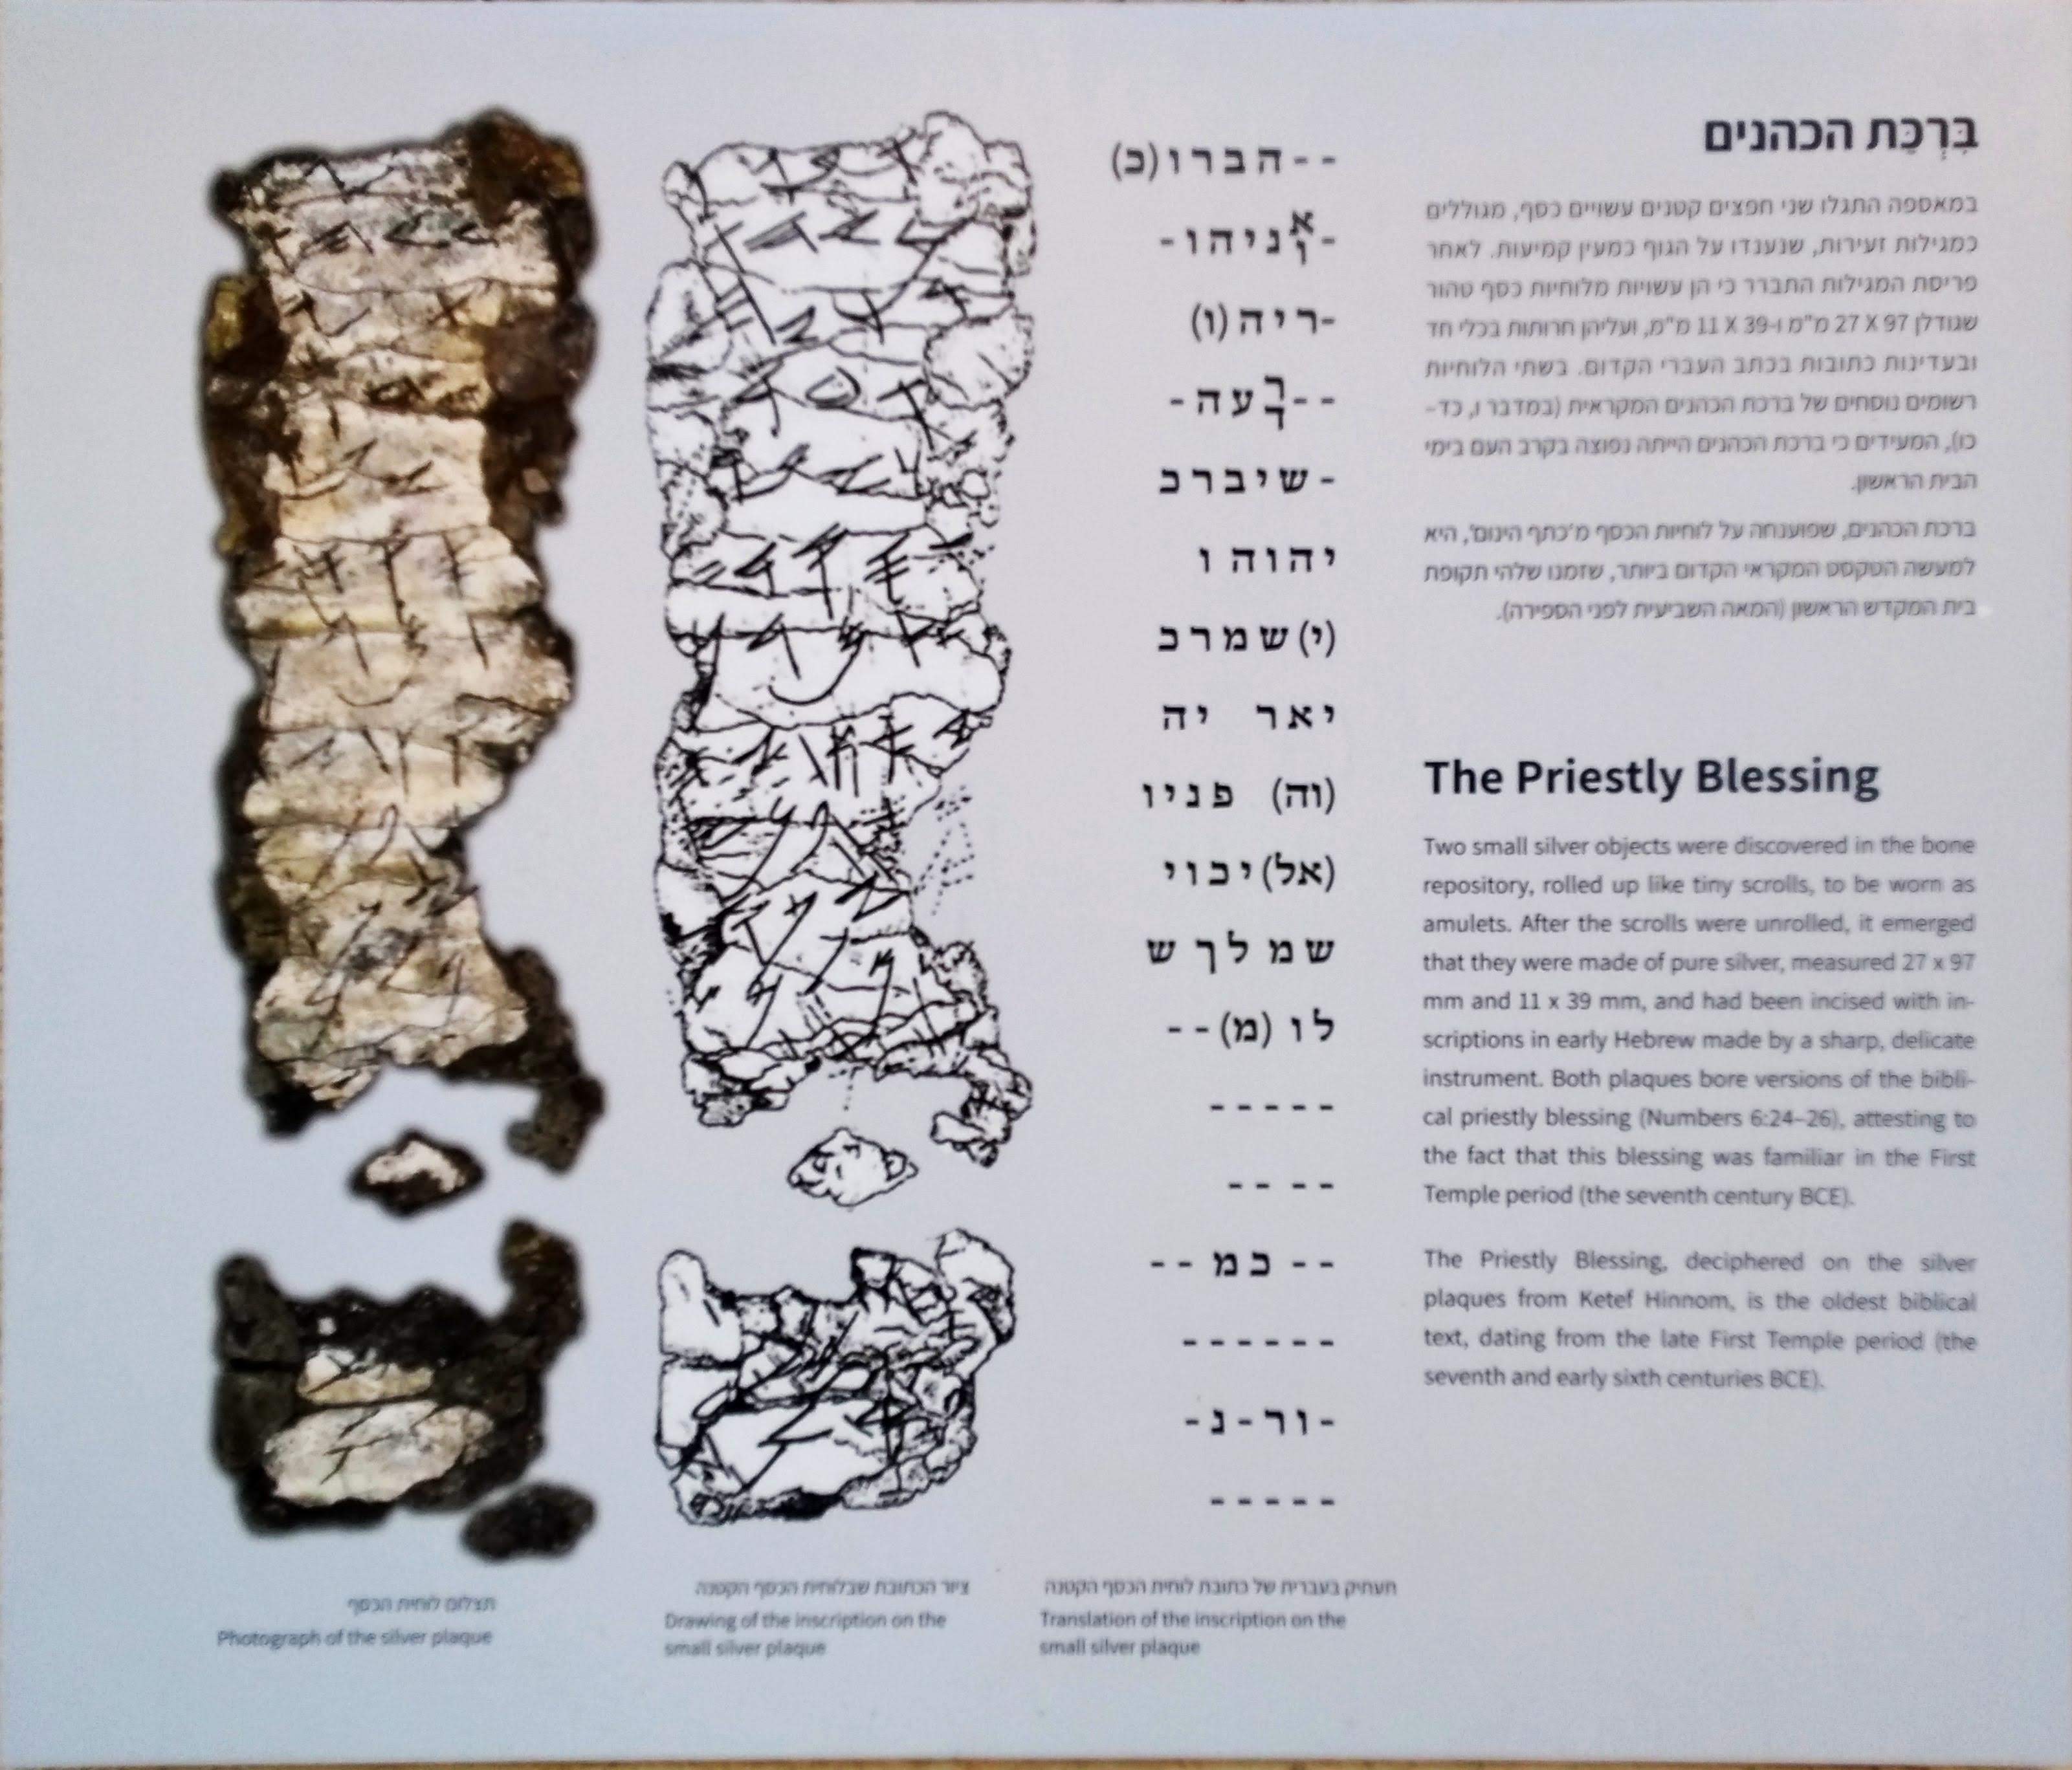 בִּרְכַּת הכהנים
במאספה התגלו שני חפצים קטנים עשויים כסף, מגוללים
כמגילות זעירות, שנענדו על הגוף כמעין קמיעות. לאחר
פריסת המגילות התברר כי הן עשויות מלוחיות כסף טהור
שגודלן 97 X 27 מ"מ ו-39 X 11 מ"מ, ועליהן חרותות בכלי חד
ובעדינות כתובות בכתב העברי הקדום. בשתי הלוחיות
רשומים נוסחים של ברכת הכהנים המקראית (במדבר ו, כד-
כו), המעידים כי ברכת הכהנים הייתה נפוצה בקרב העם בימי
הבית הראשון.
ברכת הכהנים, שפוענחה על לוחיות הכסף מ'כתף הינום', היא
למעשה הטקסט המקראי הקדום ביותר, שזמנו שלהי תקופת
בית המקדש הראשון (המאה השביעית לפני הספירה).
The Priestly Blessing
Two small silver objects were discovered in the bone
repository, rolled up like tiny scrolls, to be worn as
amulets. After the scrolls were unrolled, it emerged
that they were made of pure silver, measured 27 x 97
mm and 11 x 39 mm, and had been incised with in-
scriptions in early Hebrew made by a sharp, delicate
instrument. Both plaques bore versions of the bibli-
cal priestly blessing (Numbers 6:24–26), attesting to
the fact that this blessing was familiar in the First
Temple period (the seventh century BCE).
The Priestly Blessing, deciphered on the silver
plaques from Ketef Hinnom, is the oldest biblical
text, dating from the late First Temple period (the
seventh and early sixth centuries BCE).
--הברו(כ)
-א/וניהו-
-ריה(ו)
--ר/ךעה-
-שיברכ
יהוה ו
(י)שמרכ
יאר יה
(וה) פניו
(אל)יכוי
שמלך ש
לו (מ)--
-----
-- --
-- כמ --
------
-ור-נ-
-----
תעתיק בעברית של כתובת לוחית הכסף הקטנה
Translation of the inscription on the
small silver plaque
ציור הכתובת שבלוחית הכסף הקטנה
Drawing of the inscription on the
small silver plaque
תצלום לוחית הכסף
Photograph of the silver plaque